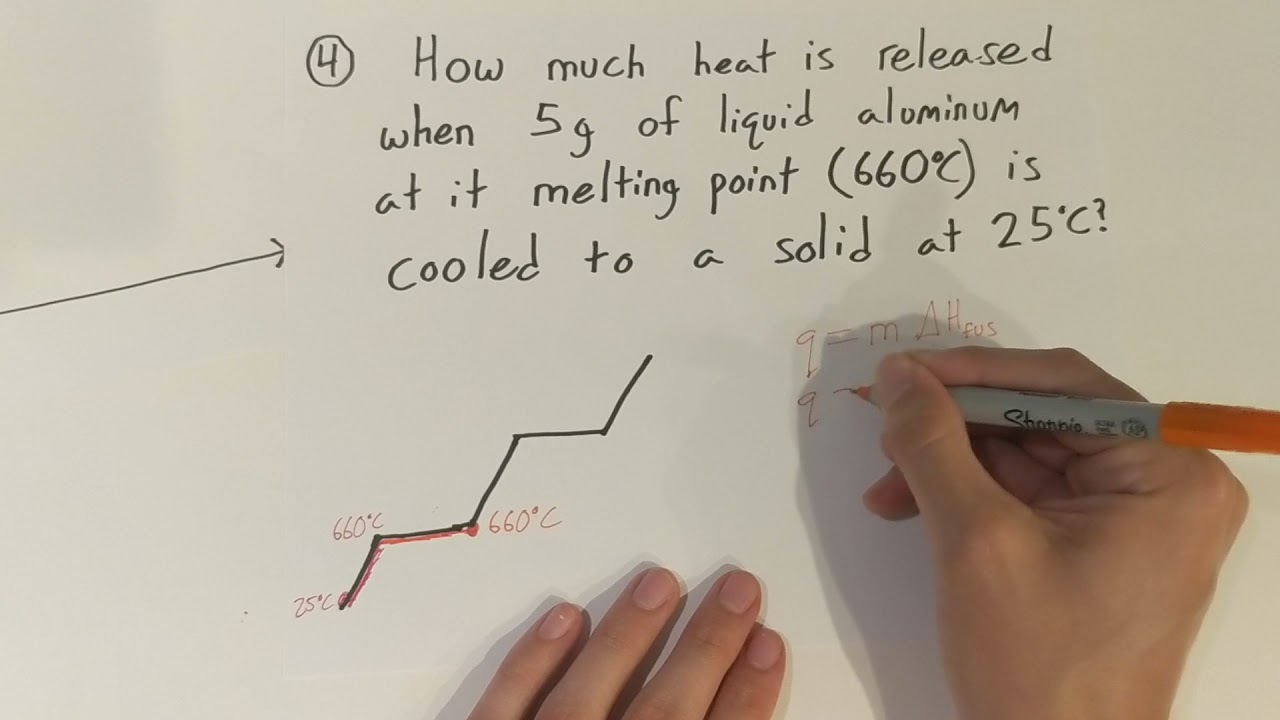 ④ How much heat is released
when 5g of liquid aluminum
at it melting point (660°C) is
cooled to a solid at 25°C?
q = m ΔHfus
q =
Sharpie
660°C
660°C
25°C